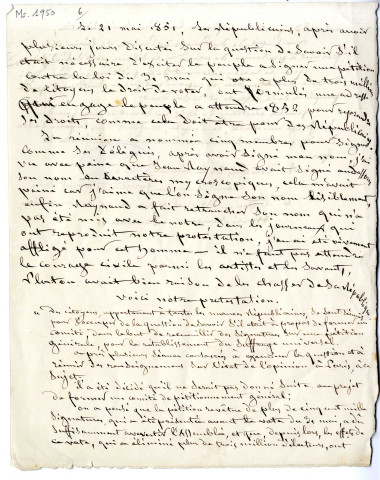 Ms. 1950
6
Le 21 mai 1851, les républicains, après avoir
plusieurs jours discuté sur la question de savoir s'il
était nécessaire d'exciter le peuple à signer une pétition
contre la loi du 31 mai qui ota a plus de trois millions
de citoyens le droit de voter, ont formulés une adresse
engage le peuple a attendre 1852 pour reprendre
ses droits, comme cela doit être pour des Républicains.
La réunion a nommée cinq membres pour signer
comme ses délégués, après avoir signé mon nom, j'ai
vu avec peine que Jean Reynaud avait signé au dessous
son nom en caractère myscroscopiques, cela m'avait
peiné car j'aime que l'on signe son nom lisiblement,
enfin Reynaud a fait retrancher son nom qui n'a
pas été mis avec le notre, dans les journaux qui
ont reproduit notre protestation, j'en ai été vivement
affligé pour cet homme — il ne faut pas attendre
le courage civile parmi les artistes et les savants,
Platon avait bien raison de les chasser de sa République
Voici notre protestation.
" Des citoyens, appartenant à toutes les nuances républicaines, se sont réunis
pour s'occuper de la question de savoir s'il était à propos de former un
comité, dans le but de recueillir des signatures pour une pétition
générale, pour le rétablissement du suffrage universel.
après plusieurs séances consacrées a examiner la question et à
réunir des renseignements sur l'état de l'opinion à Paris, à ce
sujet.
Il a été décidé qu'il ne serait pas donné suite au projet
de former un comité de pétitionnement général;
on a pensé que la pétition revêtue de plus de cinq cent mille
signatures, qui a été présentée avant le vote du 31 mai, a du
suffisamment avertir l'assemblée, et que, depuis lors, les effets de
ce vote, qui a éliminé plus de trois millions d'électeurs, ont